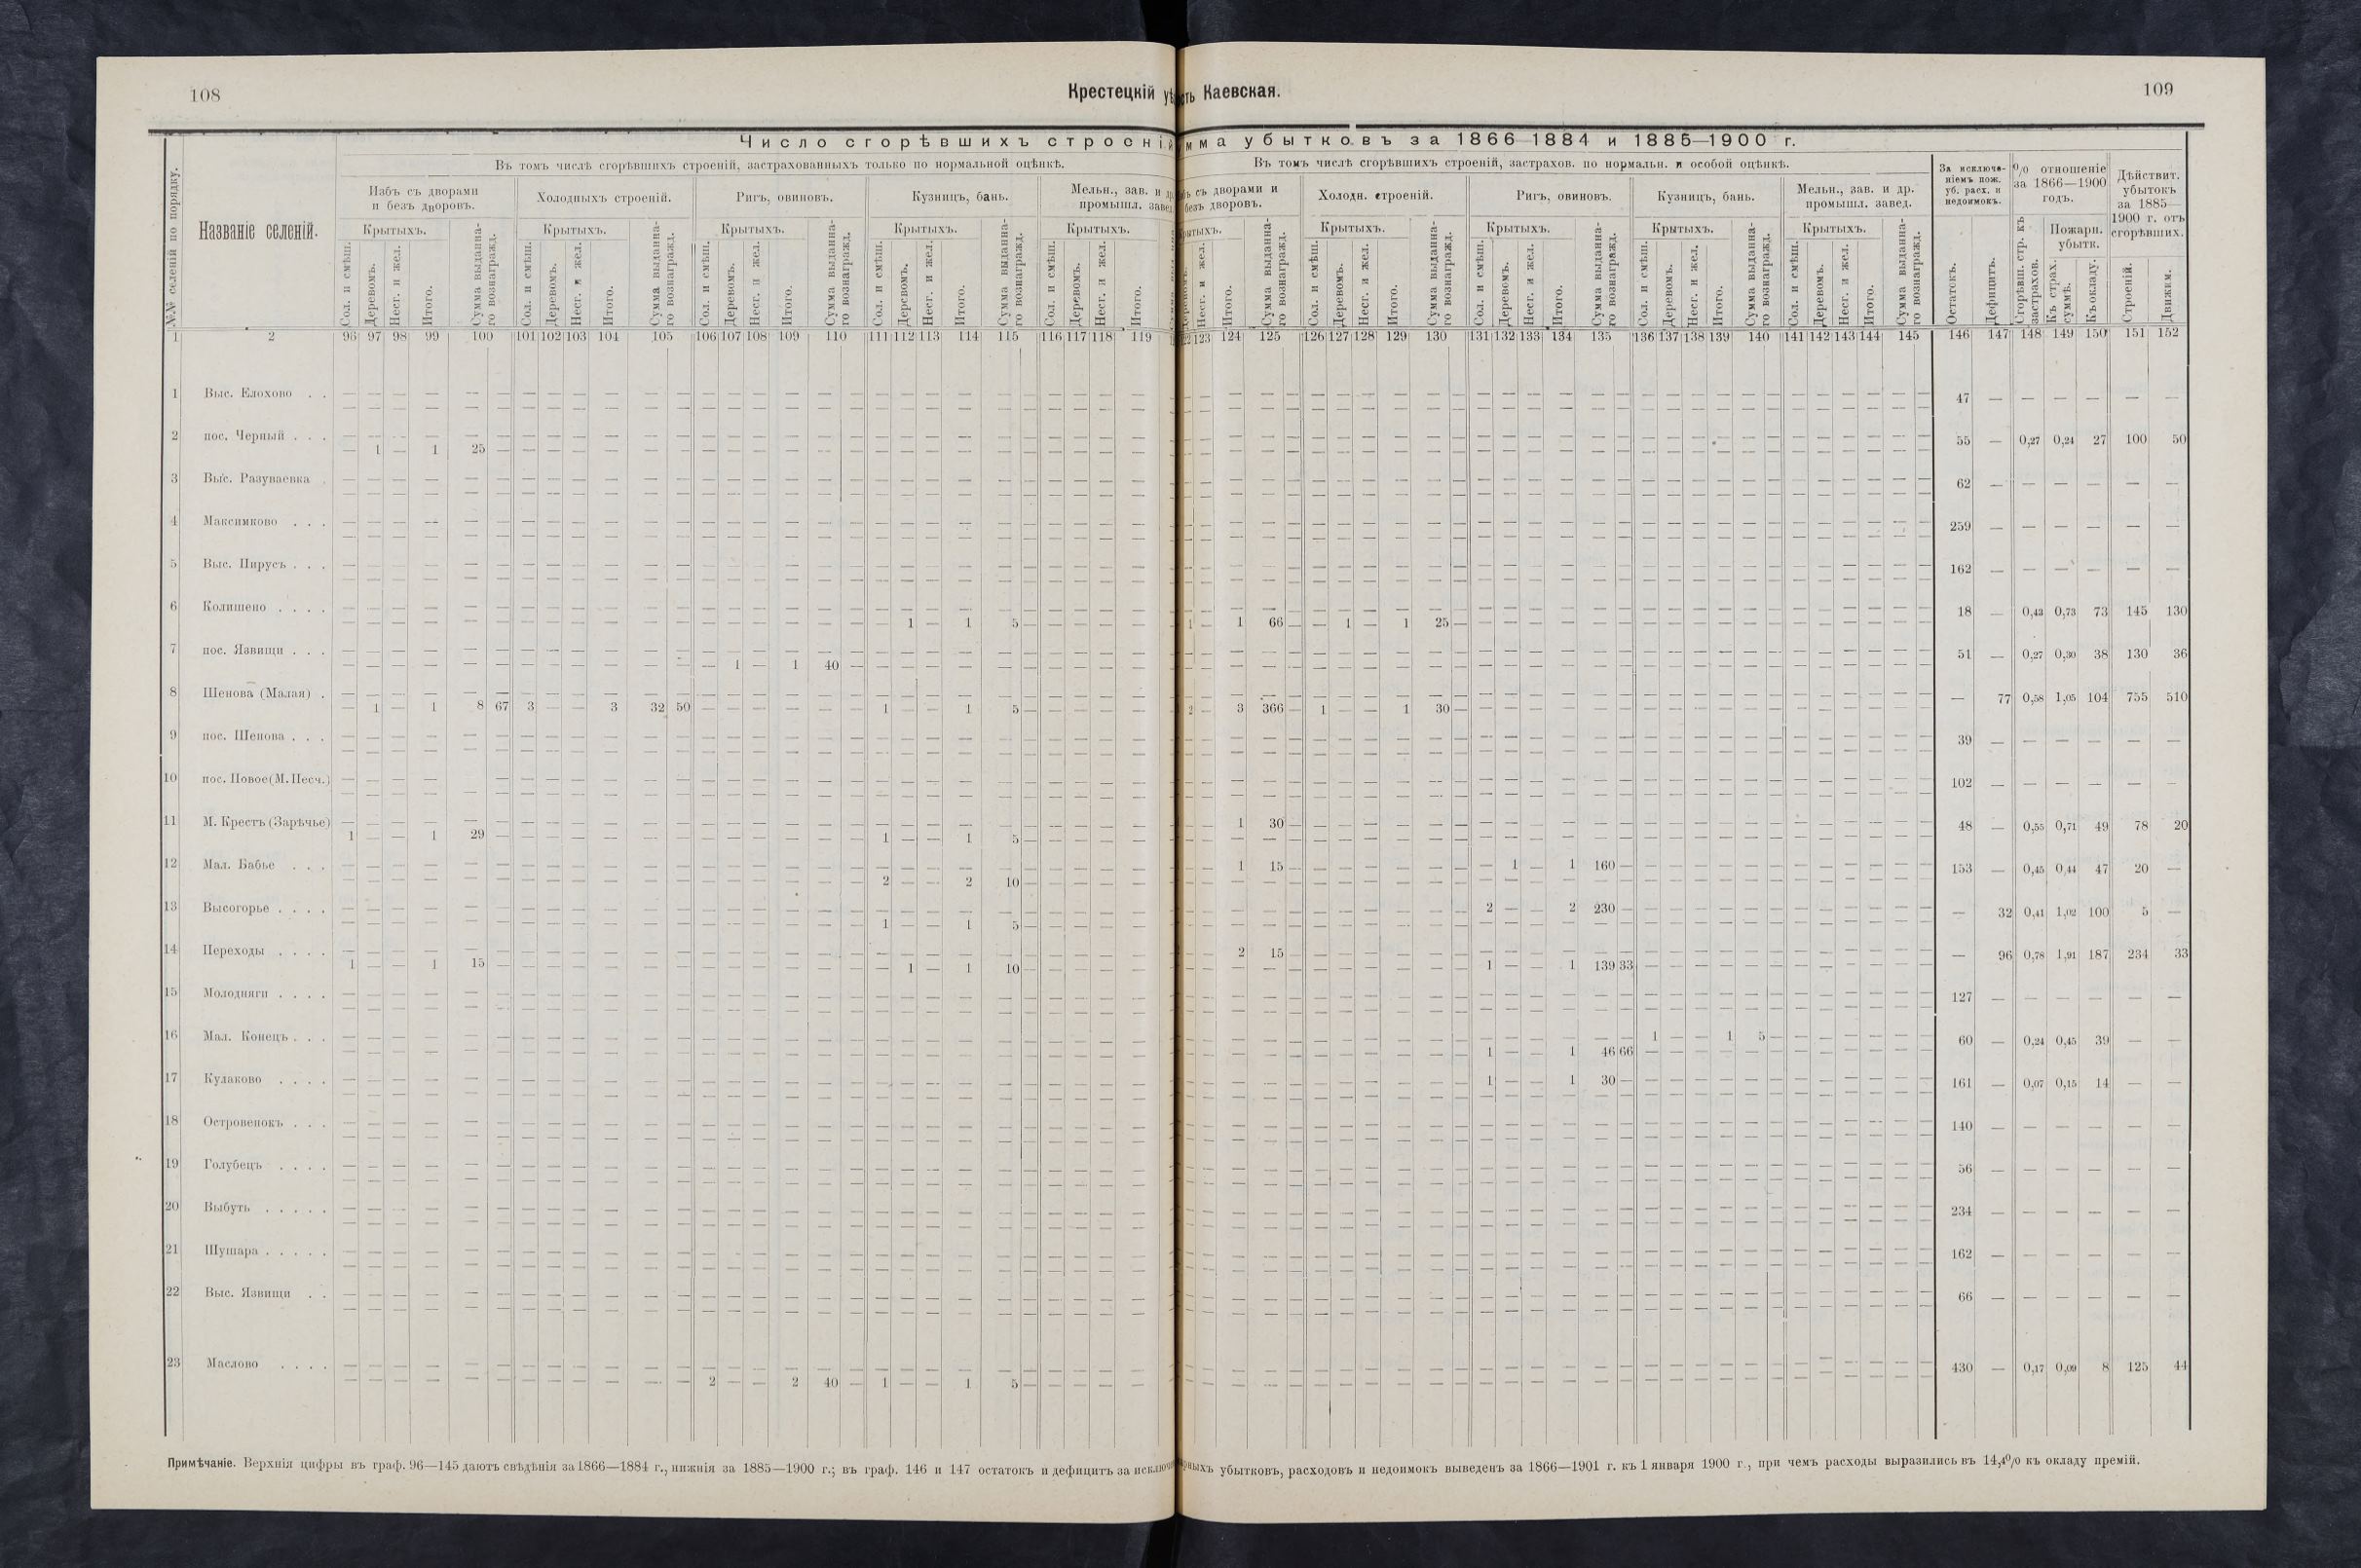 108
Крестецкій уѣ
сть Каевская.
109
Число сгорѣвшихъ строеній
мма убытковъ за 1866—1884 и 1885—1900 г.
№№ селеній по порядку.
Названіе селеній.
Въ томъ числѣ сгорѣвшихъ строеній, застрахованныхъ только по нормальной оцѣнкѣ.
Въ томъ числѣ сгорѣвшихъ строеній, застрахов. по нормальн. и особой оцѣнкѣ.
За исключеніемъ пож. уб. расх. и недоимокъ.
% отношеніе за 1866—1900 годъ.
Дѣйствит. убытокъ за 1885—1900 г. отъ сгорѣвшихъ.
Избъ съ дворами и безъ дворовъ.
Холодныхъ строеній.
Ригъ, овиновъ.
Кузницъ, бань.
Мельн., зав. и др. промышл. завед.
ъ съ дворами и безъ дворовъ.
Холодн. строеній.
Ригъ, овиновъ.
Кузницъ, бань.
Мельн., зав. и др. промышл. завед.
Крытыхъ. Крытыхъ. Крытыхъ. Крытыхъ. Крытыхъ. Крытыхъ. Крытыхъ. Крытыхъ. Крытыхъ.
Сол. и смѣш. Деревомъ. Несг. и жел. Итого. Сумма выданнаго вознагражд.
Сол. и смѣш. Деревомъ. Несг. и жел. Итого. Сумма выданнаго вознагражд.
Сол. и смѣш. Деревомъ. Несг. и жел. Итого. Сумма выданнаго вознагражд.
Сол. и смѣш. Деревомъ. Несг. и жел. Итого. Сумма выданнаго вознагражд.
Сол. и смѣш. Деревомъ. Несг. и жел. Итого.
Несг. и жел. Итого. Сумма выданнаго вознагражд.
Сол. и смѣш. Деревомъ. Несг. и жел. Итого. Сумма выданнаго вознагражд.
Сол. и смѣш. Деревомъ. Несг. и жел. Итого. Сумма выданнаго вознагражд.
Сол. и смѣш. Деревомъ. Несг. и жел. Итого. Сумма выданнаго вознагражд.
Сол. и смѣш. Деревомъ. Несг. и жел. Итого. Сумма выданнаго вознагражд.
Остатокъ. Дефицитъ. Сгорѣвш. стр. къ застрахов. Пожарн. убытк. Къ страх. суммѣ. Къ окладу. Строеній. Движим.
1 2 96 97 98 99 100 101 102 103 104 105 106 107 108 109 110 111 112 113 114 115 116 117 118 119 123 124 125 126 127 128 129 130 131 132 133 134 135 136 137 138 139 140 141 142 143 144 145 146 147 148 149 150 151 152
1 Выс. Елохово . . 47 — — — — — —
2 пос. Черный . . . 55 — 0,27 0,24 27 100 50
— 1 — 1 25 —
3 Выс. Разуваевка . 62 — — — — — —
4 Максимково . . . 259 — — — — — —
5 Выс. Пирусъ . . . 162 — — — — — —
6 Колишено . . . . 18 — 0,43 0,73 73 145 130
— 1 — 1 5 — 1 — 1 66 — — 1 — 1 25 —
7 пос. Язвищи . . . 51 — 0,27 0,30 38 130 36
— 1 — 1 40 —
8 Шенова (Малая) . — 77 0,58 1,05 104 755 510
— 1 — 1 8 67 3 — — 3 32 50 1 — — 1 5 — 2 — 3 366 — 1 — — 1 30 —
9 пос. Шенова . . . 39 — — — — — —
10 пос. Новое(М. Песч.) 102 — — — — — —
11 М. Крестъ (Зарѣчье) 1 30 — 48 — 0,55 0,71 49 78 20
1 — — 1 29 — 1 — — 1 5 —
12 Мал. Бабье . . . 1 15 — — 1 — 1 160 — 153 — 0,45 0,44 47 20 —
2 — — 2 10 —
13 Высогорье . . . . 2 — — 2 230 — — 32 0,41 1,02 100 5 —
1 — — 1 5 —
14 Переходы . . . . 2 15 — — 96 0,78 1,91 187 234 33
1 — — 1 15 — — 1 — 1 10 — 1 — — 1 139 33
15 Молодняги . . . . 127 — — — — — —
16 Мал. Конецъ . . . 1 — — 1 5 — 60 — 0,24 0,45 39 — —
1 — — 1 46 66
17 Кулаково . . . . 1 — — 1 30 — 161 — 0,07 0,15 14 — —
18 Островенокъ . . . 140 — — — — — —
19 Голубецъ . . . . 56 — — — — — —
20 Выбуть . . . . . 234 — — — — — —
21 Шушара . . . . . 162 — — — — — —
22 Выс. Язвищи . . 66 — — — — — —
23 Маслово . . . . 430 — 0,17 0,09 8 125 44
2 — — 2 40 — 1 — — 1 5 —
Примѣчаніе. Верхнія цифры въ граф. 96—145 даютъ свѣдѣнія за 1866—1884 г., нижнія за 1885—1900 г.; въ граф. 146 и 147 остатокъ и дефицитъ за исключ
рныхъ убытковъ, расходовъ и недоимокъ выведенъ за 1866—1901 г. къ 1 января 1900 г., при чемъ расходы выразились въ 14,4% къ окладу премій.